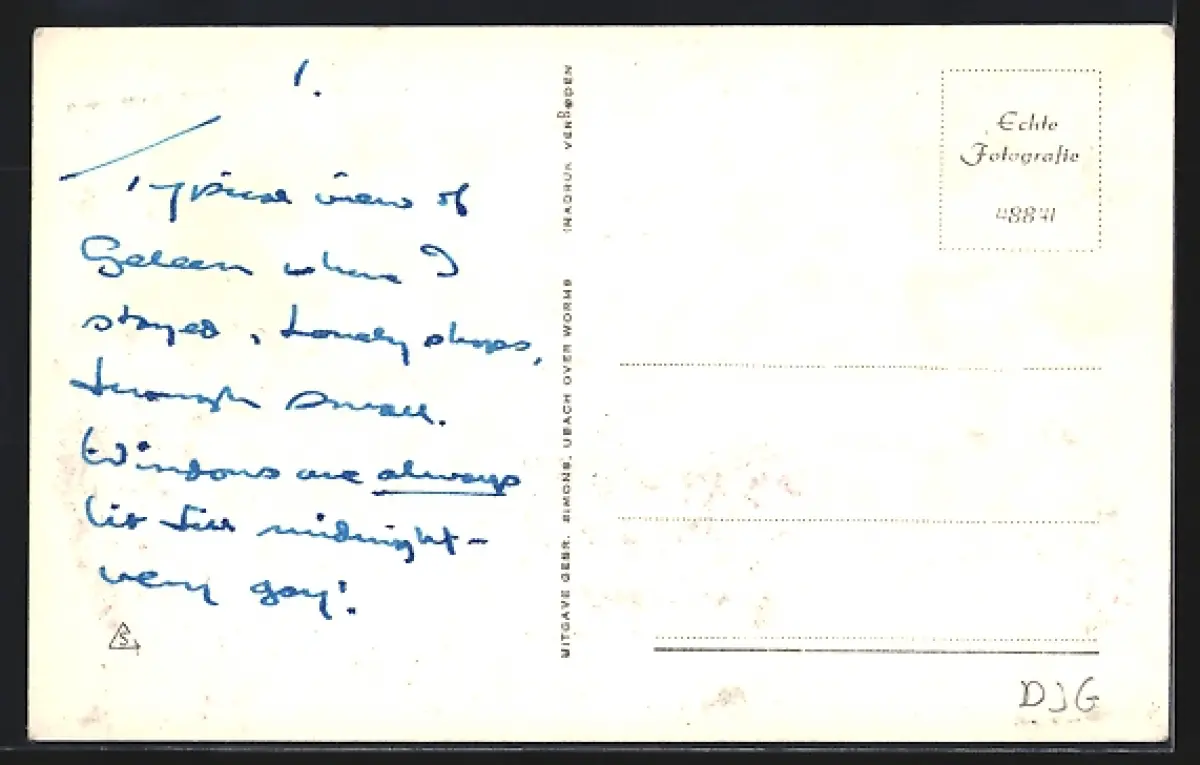 1.
Typical view of
Geleen where I
stayed, Lovely shops,
though small.
Windows are always
lit till midnight -
very gay!
UITGAVE GEBR. SIMONS, UBACH OVER WORMS
NADRUK VERBODEN
Echte
Fotografie
DJG